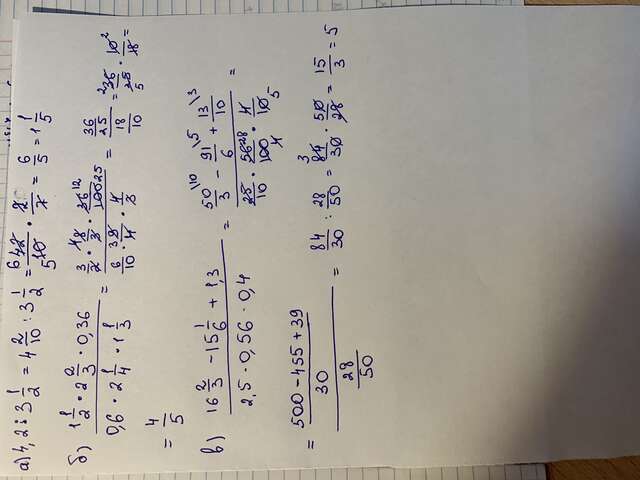 а) 4,2 : 3 1/2 = 4 2/10 : 3 1/2 = 42/10 · 2/7 = 6/5 = 1 1/5
б) (1 1/2 · 2 2/3 · 0,36) / (0,6 · 2 1/4 · 1 1/3) = (3/2 · 8/3 · 36/100) / (6/10 · 9/4 · 4/3) = (36/25) / (18/10) = 36/25 · 10/18 =
= 4/5
в) (16 2/3 - 15 1/6 + 1,3) / (2,5 · 0,56 · 0,4) = (50/3 - 91/6 + 13/10) / (25/10 · 56/100 · 4/10) =
= ((500 - 455 + 39)/30) / (28/50) = 84/30 : 28/50 = 84/30 · 50/28 = 15/3 = 5